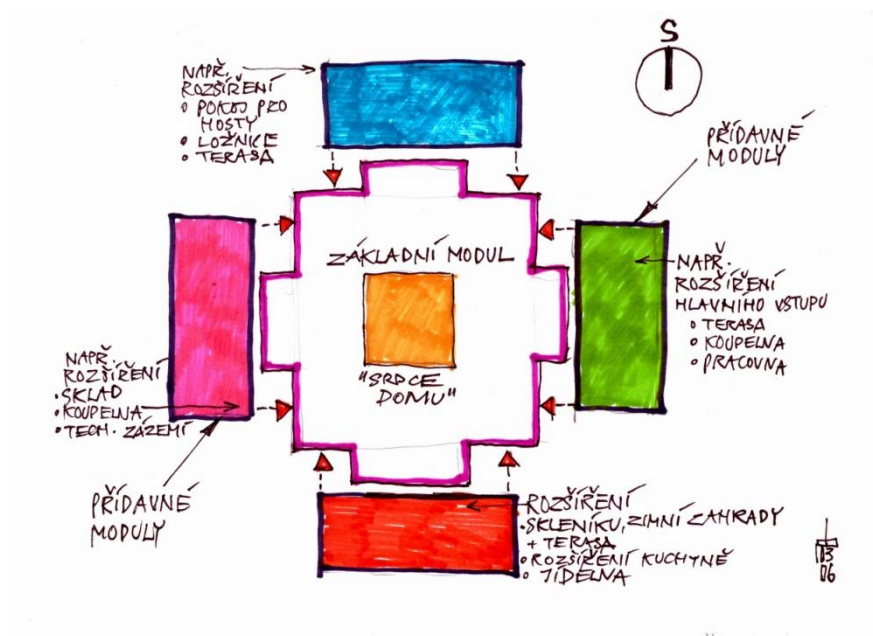 S
NAPŘ.
ROZŠÍŘENÍ
• POKOJ PRO
HOSTY
• LOŽNICE
• TERASA
PŘÍDAVNÉ
MODULY
ZÁKLADNÍ MODUL
"SRDCE
DOMU"
NAPŘ.
ROZŠÍŘENÍ
HLAVNÍHO VSTUPU
• TERASA
• KOUPELNA
• PRACOVNA
NAPŘ.
ROZŠÍŘENÍ
• SKLAD
• KOUPELNA
• TECH. ZÁZEMÍ
PŘÍDAVNÉ
MODULY
ROZŠÍŘENÍ
• SKLENÍKU, ZIMNÍ ZAHRADY
+ TERASA
• ROZŠÍŘENÍ KUCHYNĚ
• JÍDELNA
03
06